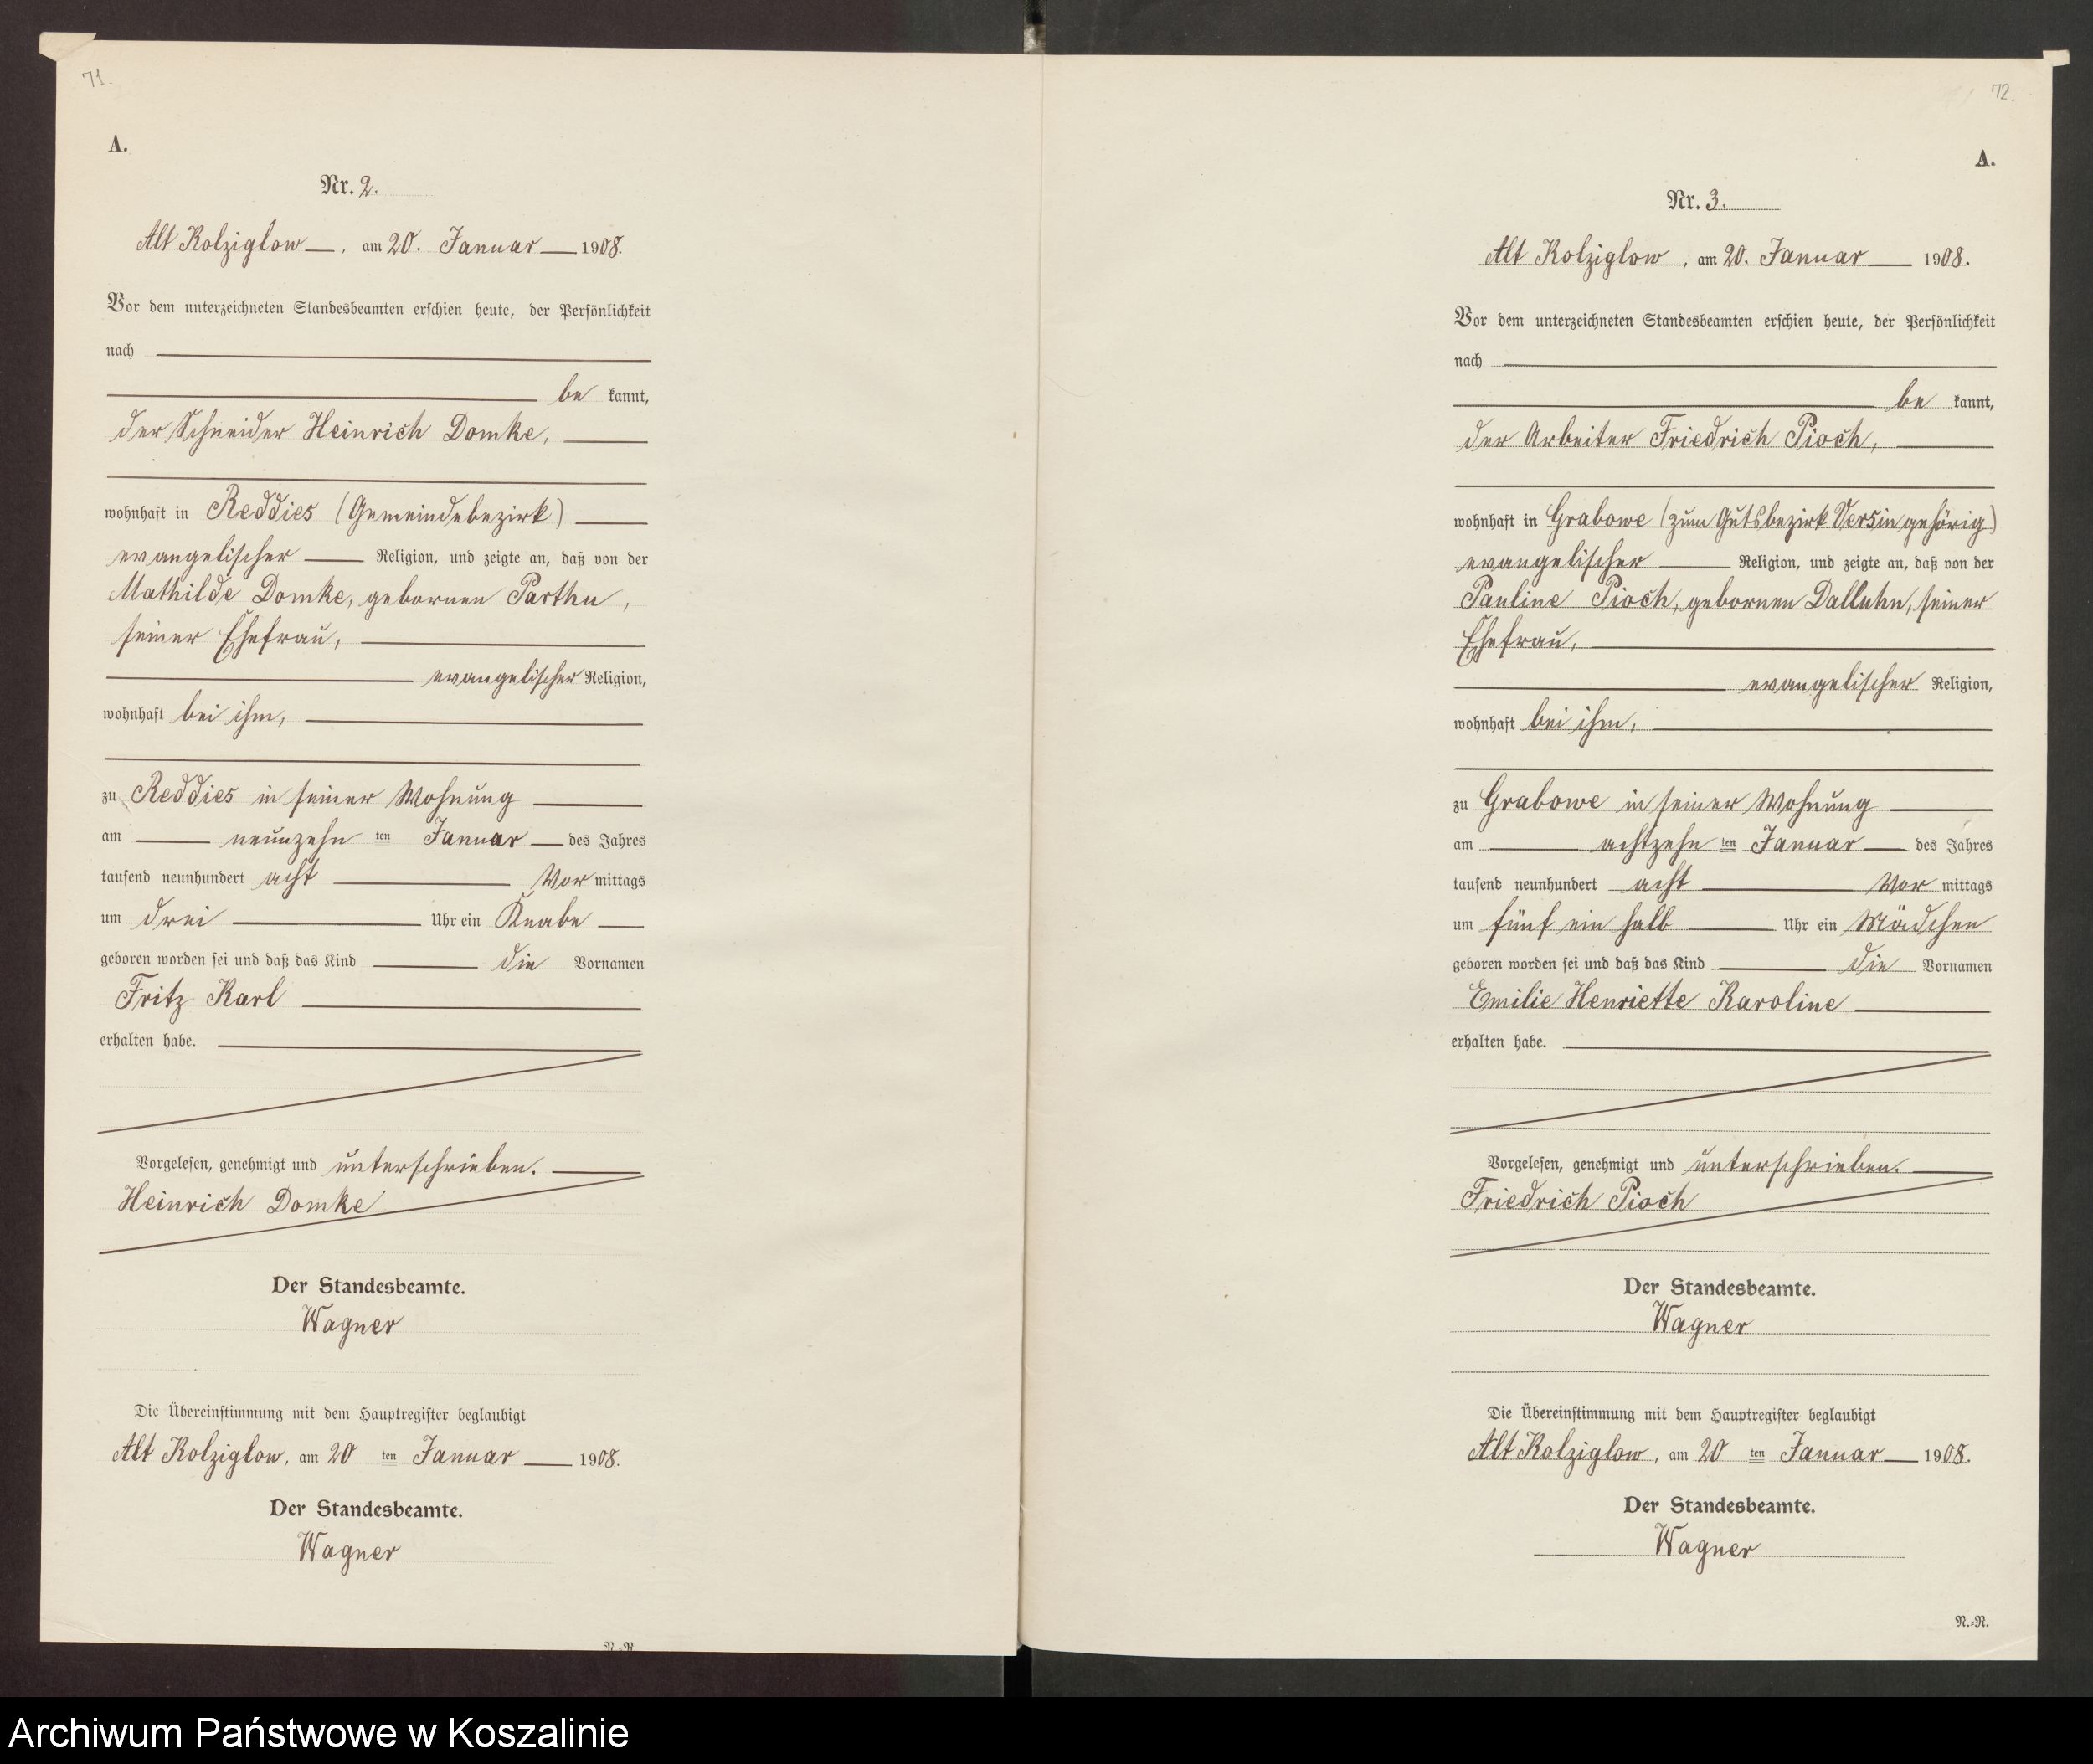 71.
A.
Nr. 2.
Alt Kolziglow, am 20. Januar 1908.
Vor dem unterzeichneten Standesbeamten erschien heute, der Persönlichkeit
nach
be kannt,
der Schneider Heinrich Domke,
wohnhaft in Reddies (Gemeindebezirk)
evangelischer Religion, und zeigte an, daß von der
Mathilde Domke, gebornen Parthu,
seiner Ehefrau,
evangelischer Religion,
wohnhaft bei ihm,
zu Reddies in seiner Wohnung
am neunzehn ten Januar des Jahres
tausend neunhundert acht Vor mittags
um drei Uhr ein Knabe
geboren worden sei und daß das Kind die Vornamen
Fritz Karl
erhalten habe.
Vorgelesen, genehmigt und unterschrieben.
Heinrich Domke
Der Standesbeamte.
Wagner
Die Übereinstimmung mit dem Hauptregister beglaubigt
Alt Kolziglow, am 20 ten Januar 1908.
Der Standesbeamte.
Wagner
N.=N.
72.
A.
Nr. 3.
Alt Kolziglow, am 20. Januar 1908.
Vor dem unterzeichneten Standesbeamten erschien heute, der Persönlichkeit
nach
be kannt,
der Arbeiter Friedrich Pioch,
wohnhaft in Grabowe (zum Gutsbezirk Versin gehörig)
evangelischer Religion, und zeigte an, daß von der
Pauline Pioch, gebornen Dalluhn, seiner
Ehefrau,
evangelischer Religion,
wohnhaft bei ihm,
zu Grabowe in seiner Wohnung
am achtzehn ten Januar des Jahres
tausend neunhundert acht Vor mittags
um fünf ein halb Uhr ein Mädchen
geboren worden sei und daß das Kind die Vornamen
Emilie Henriette Karoline
erhalten habe.
Vorgelesen, genehmigt und unterschrieben.
Friedrich Pioch
Der Standesbeamte.
Wagner
Die Übereinstimmung mit dem Hauptregister beglaubigt
Alt Kolziglow, am 20 ten Januar 1908.
Der Standesbeamte.
Wagner
N.=N.
Archiwum Państwowe w Koszalinie